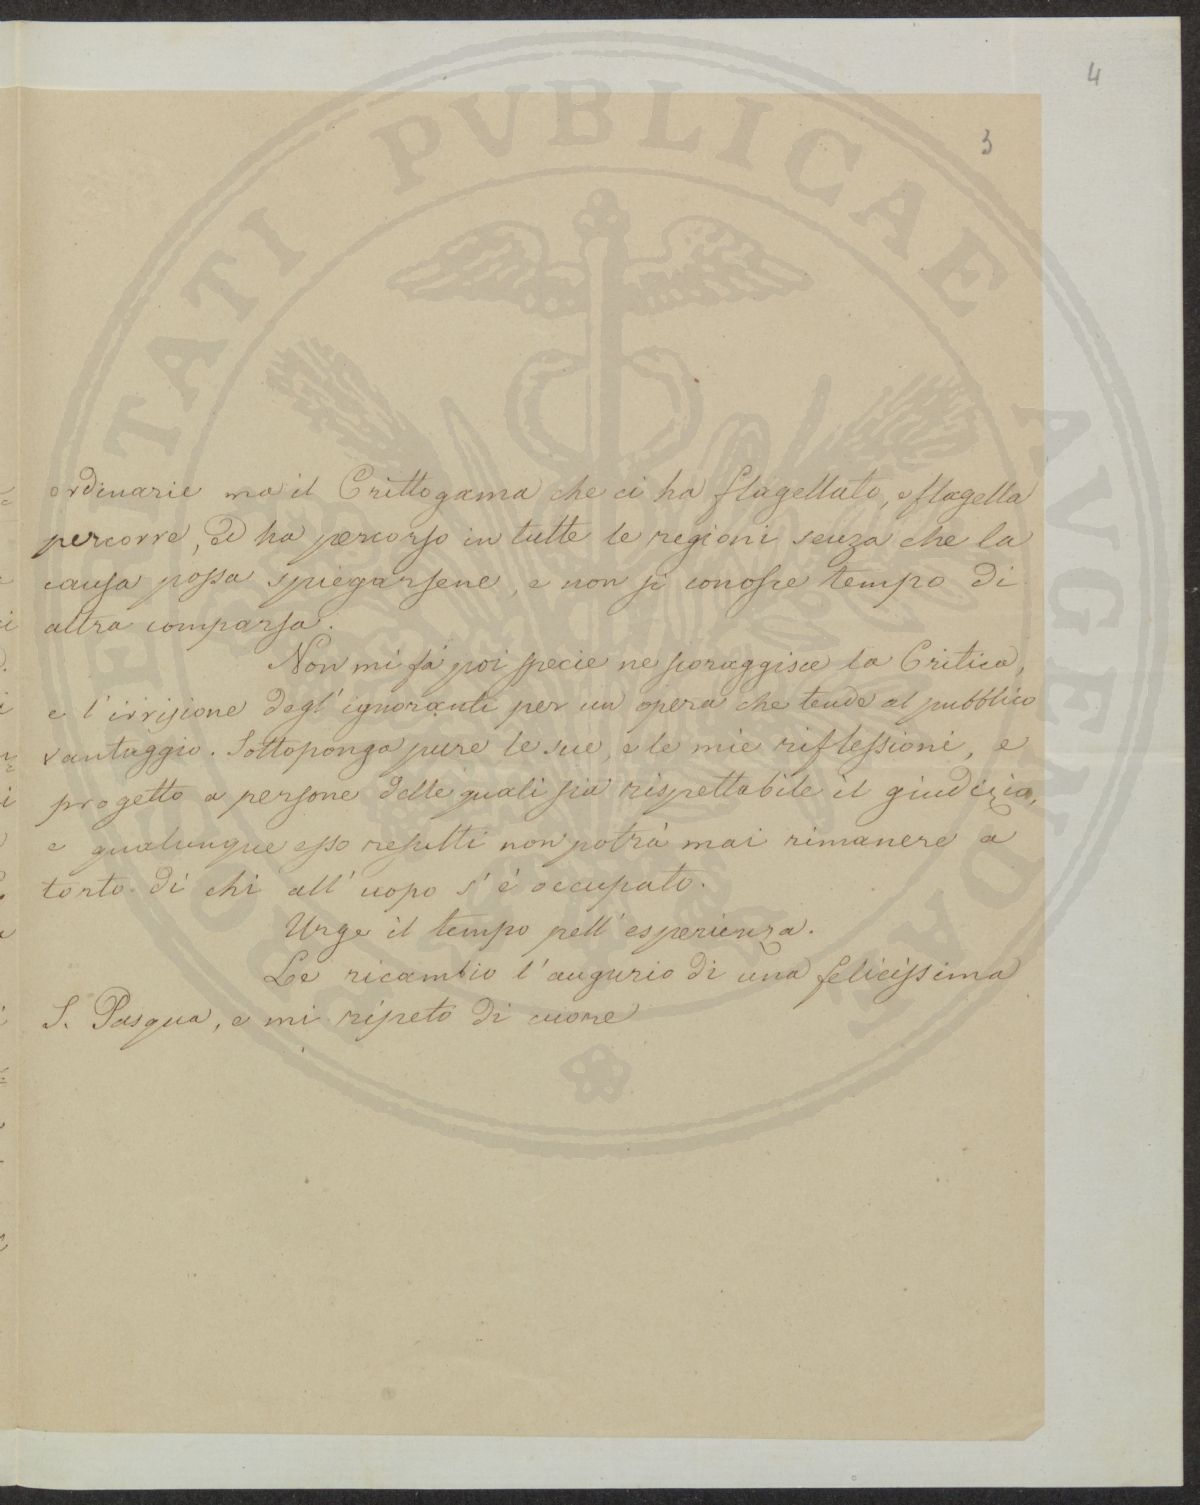 4
3
PROSPERITATI PVBLICAE AVGENDAE
ordinarie ma il Crittogama che ci ha flagellato, e flagella
percorre, ed ha percorso in tutte le regioni senza che la
causa possa spiegarsene, e non si conosce tempo di
altra comparsa.
Non mi fá poi specie ne scoraggisce la Critica,
e l'irrisione degl'ignoranti per un opera che tende al pubblico
vantaggio. Sottoponga pure le sue, e le mie riflessioni, e
progetto a persone delle quali sia rispettabile il giudizio,
e qualunque esso resulti non potrà mai rimanere a
torto di chi all'uopo s'é occupato.
Urge il tempo pell'esperienza.
Le ricambio l'augurio di una felicissima
S. Pasqua, e mi ripeto di cuore